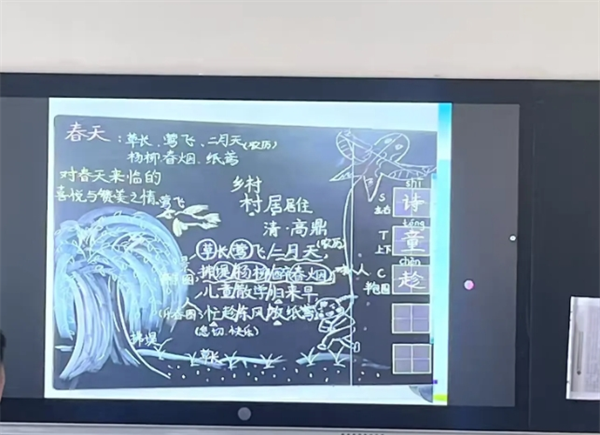 春天:草长、莺飞、二月天(农历)
杨柳、春烟、纸鸢
对春天来临的
喜悦与赞美之情
莺飞
乡村
村居 居住
清·高鼎
草长莺飞二月天(农历)
拂堤杨柳醉春烟
儿童散学归来早
忙趁东风放纸鸢
(急切、快乐)
拂堤
草长
shī
S
左右
诗
tóng
T
上下
童
chèn
C
半包围
趁